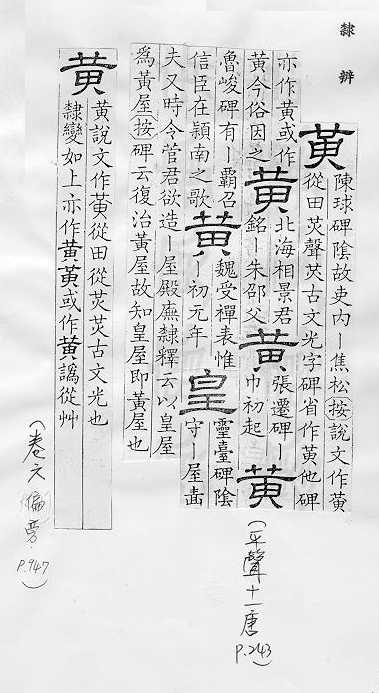 隸辨
黃
陳球碑陰故吏內丨焦松按說文作黃
從田炗聲炗古文光字碑省作黃他碑
亦作黃或作
黃今俗因之
黃
北海相景君
銘丨朱邵父
黃
張遷碑丨
巾初起
黃
魯峻碑有丨霸召
信臣在潁南之歌
黃
魏受禪表惟
丨初元年
皇
靈臺碑陰
守丨屋嗇
夫又時令管君欲造丨屋殿廡隸釋云以皇屋
為黃屋按碑云復治黃屋故知皇屋即黃屋也
(平聲十一唐 P.243)
黃
黃說文作黃從田從炗炗古文光也
隸變如上亦作黃黃或作黃譌從艸
(卷六偏旁. P.947)